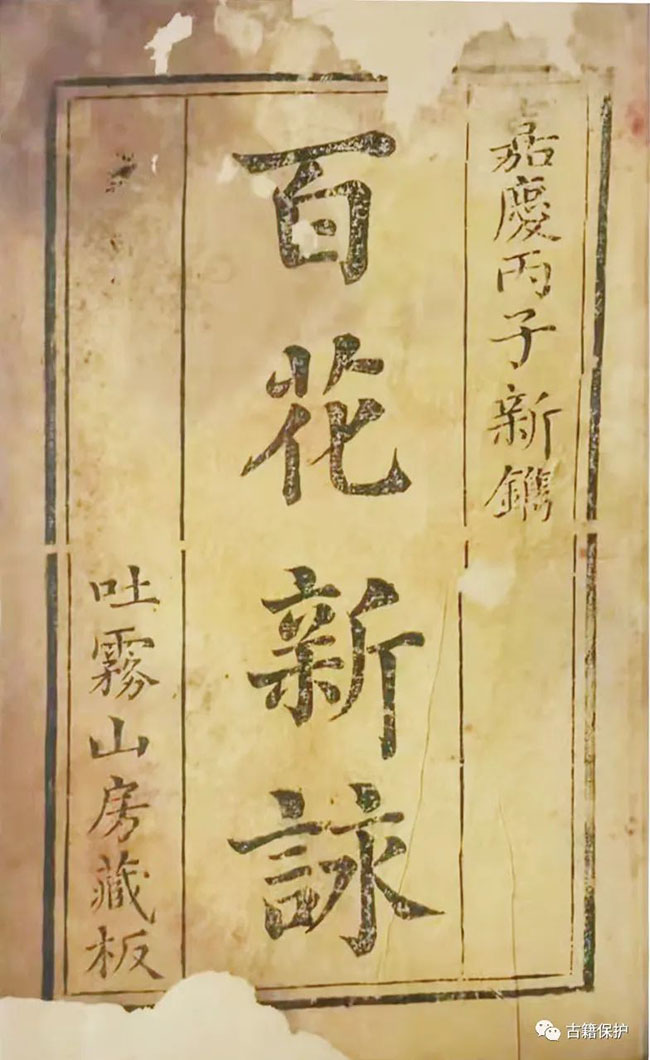 嘉慶丙子新鐫
百花新詠
吐霧山房藏板
古籍保护